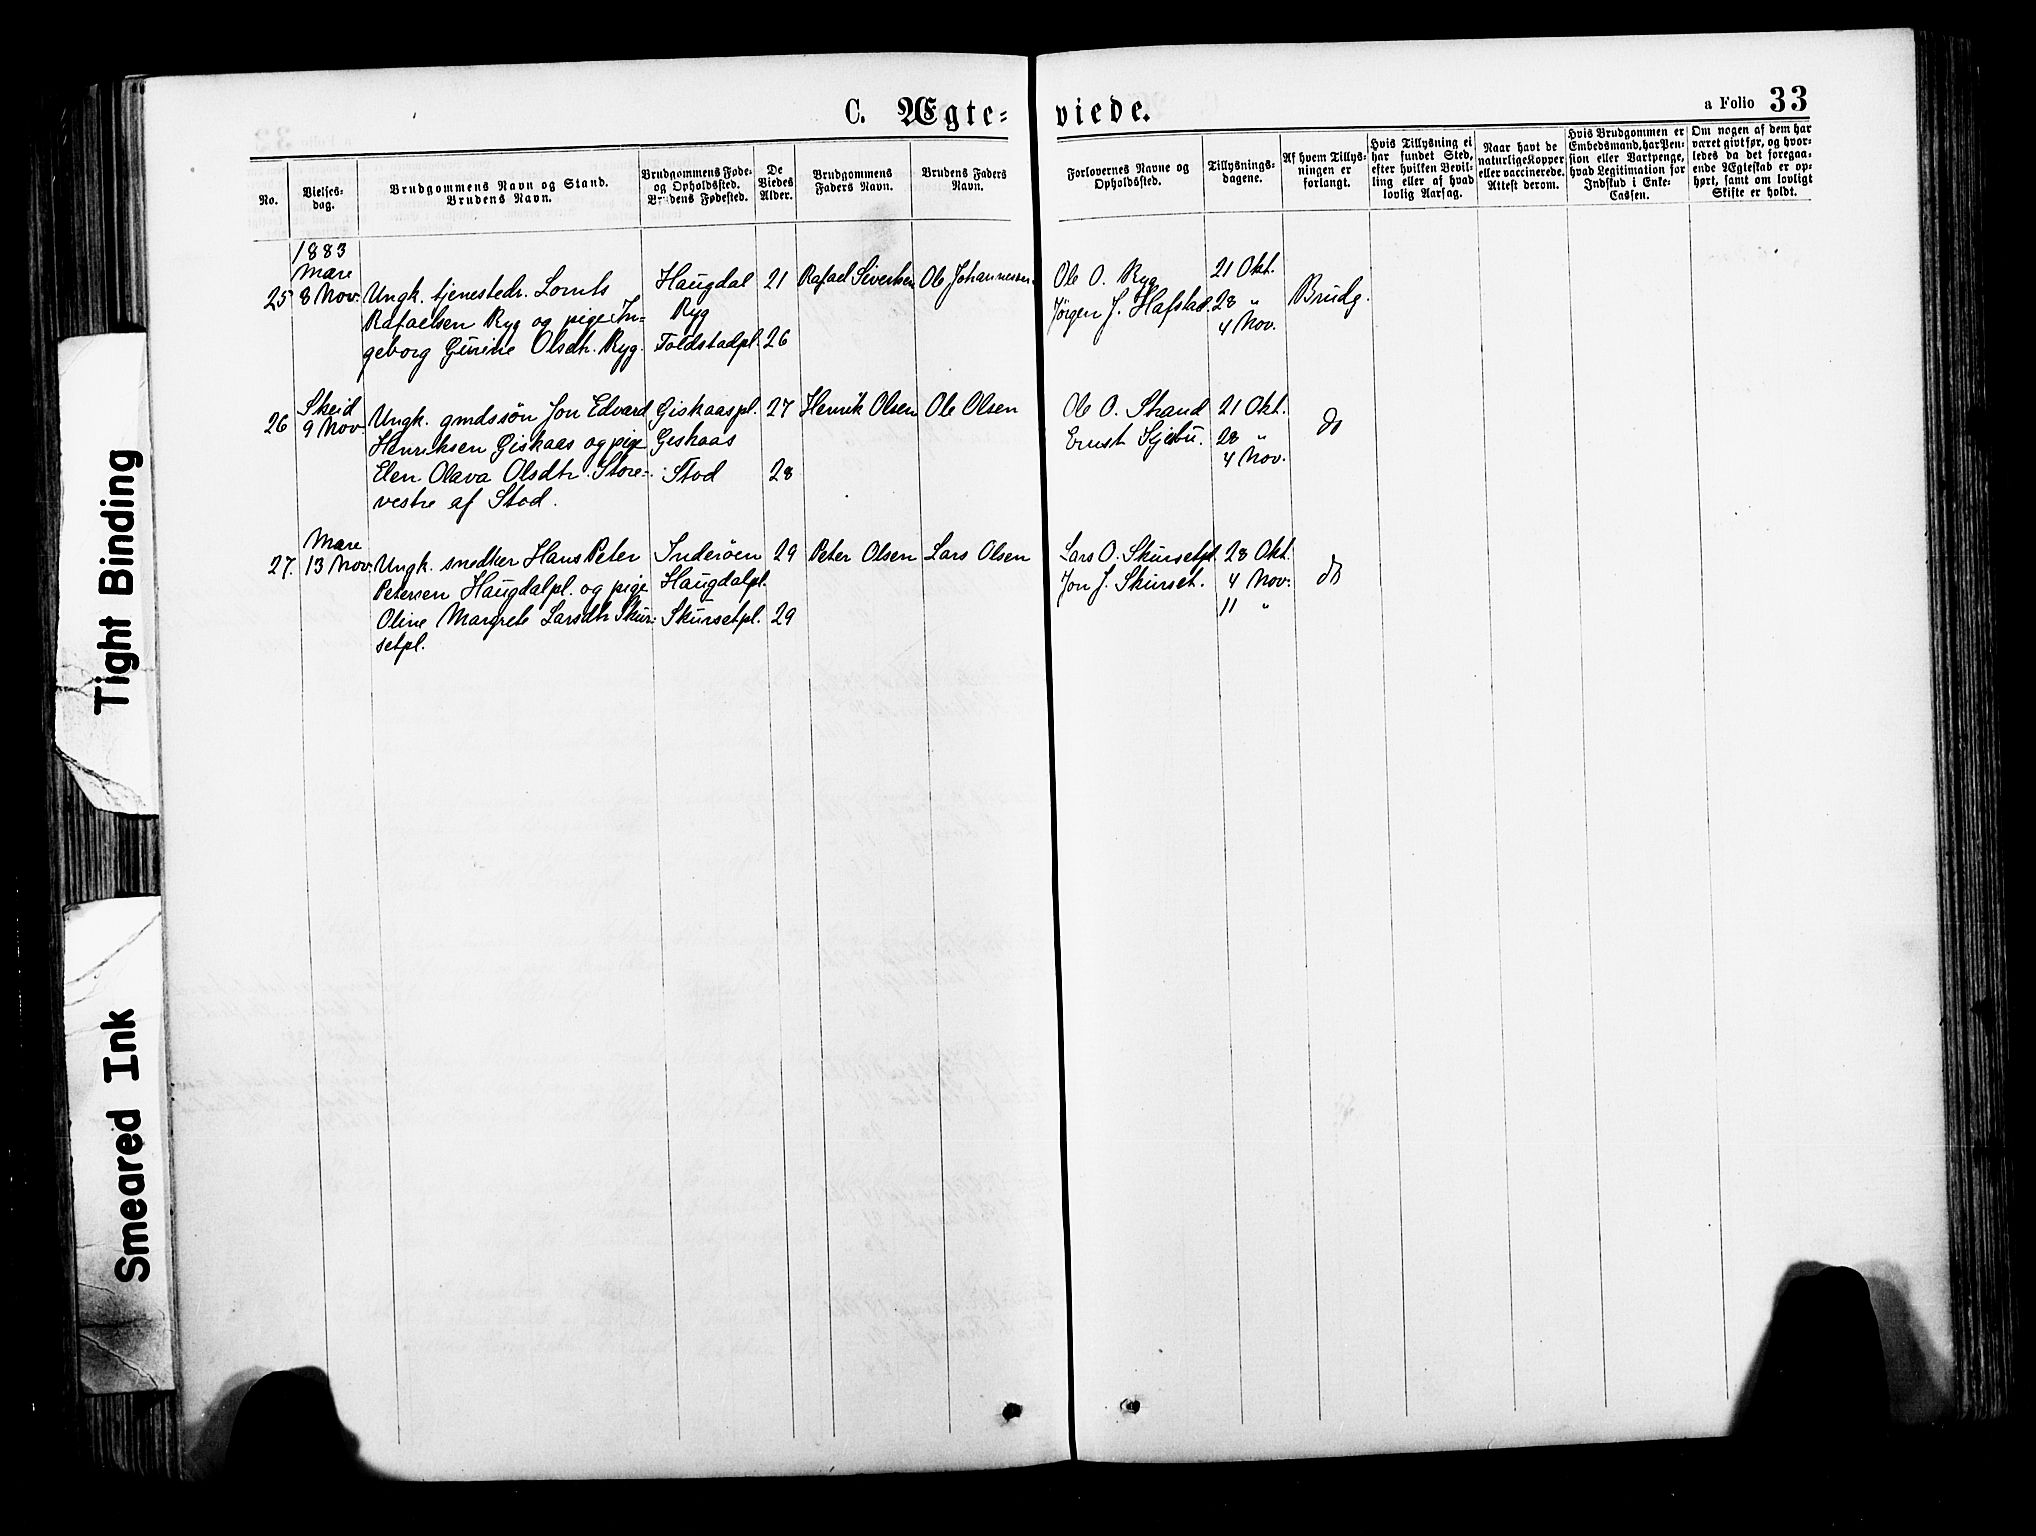 C. Ægte=
viede.
a Folio 33
No.
Vielses-
dag.
Brudgommens Navn og Stand.
Brudens Navn.
Brudgommens Føde-
og Opholdssted.
Brudens Fødested.
De
Viedes
Alder.
Brudgommens
Faders Navn.
Brudens Faders
Navn.
Forlovernes Navne og
Opholdssted.
Tillysnings-
dagene.
Af hvem Tillys-
ningen er
forlangt.
Hvis Tillysning ei
har fundet Sted,
efter hvilken Bevil-
ling eller af hvad
lovlig Aarsag.
Naar havt de
naturlige Kopper
eller vaccinerede.
Attest derom.
Hvis Brudgommen er
Embedsmand, har Pen-
sion eller Vartpenge,
hvad Legitimation for
Indskud i Enke-
Cassen.
Om nogen af dem har
været gift før, og hvor-
ledes da det foregaa-
ende Ægteskab er op-
hørt, samt om lovligt
Skifte er holdt.
1883
Mære
25 8 Nov. Ungk. tjenestedr. Lornts Haugdal 21 Rafael Sivertsen Ole Johannesen Ole O. Ryg 21 Okt. Brudg.
Rafaelsen Ryg og pige In= Ryg Jørgen J. Hafstad. 28 "
geborg Gurine Olsdtr. Ryg. Toldstadpl. 26 4 Nov.
Skeid
26 9 Nov Ungk. gmdssøn Jon Edvard Giskaaspl. 27 Henrik Olsen Ole Olsen Ole O. Strand 21 Okt. do
Henriksen Giskaas og pige Giskaas Ernst Sjebu. 28 "
Elen Olava Olsdtr. Store= Stod 28 4 Nov.
vestre af Stod.
Mære
27. 13 Nov. Ungk. snedker Hans Peter Inderøen 29 Peter Olsen Lars Olsen Lars O. Skursetpl. 28 Okt. do
Petersen Haugdalpl. og pige Haugdalpl. Jon J. Skurset. 4 Nov.
Oline Margrete Larsdtr Skur= Skursetpl. 29 11 "
setpl.
Tight Binding
Smeared Ink